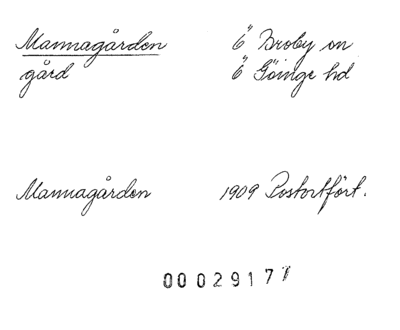 Mannagården 6" Broby sn
gård 6" Göinge hd
Mannagården 1909 Postortfört.
00029177